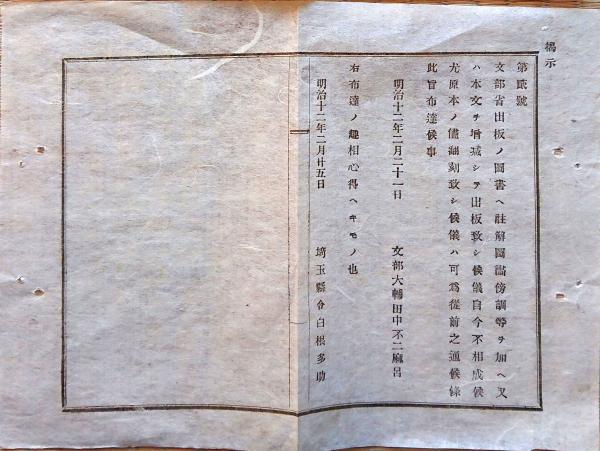 掲示
第貳號
文部省出板ノ圖書ヘ註解圖畵傍訓等ヲ加ヘ又
ハ本文ヲ增減シテ出板致シ候儀自今不相成候
尤原本ノ儘飜刻致シ候儀ハ可爲從前之通候條
此旨布達候事
明治十二年二月二十一日
文部大輔田中不二麻呂
右布達ノ趣相心得ヘキモノ也
明治十二年二月廿五日
埼玉縣令白根多助